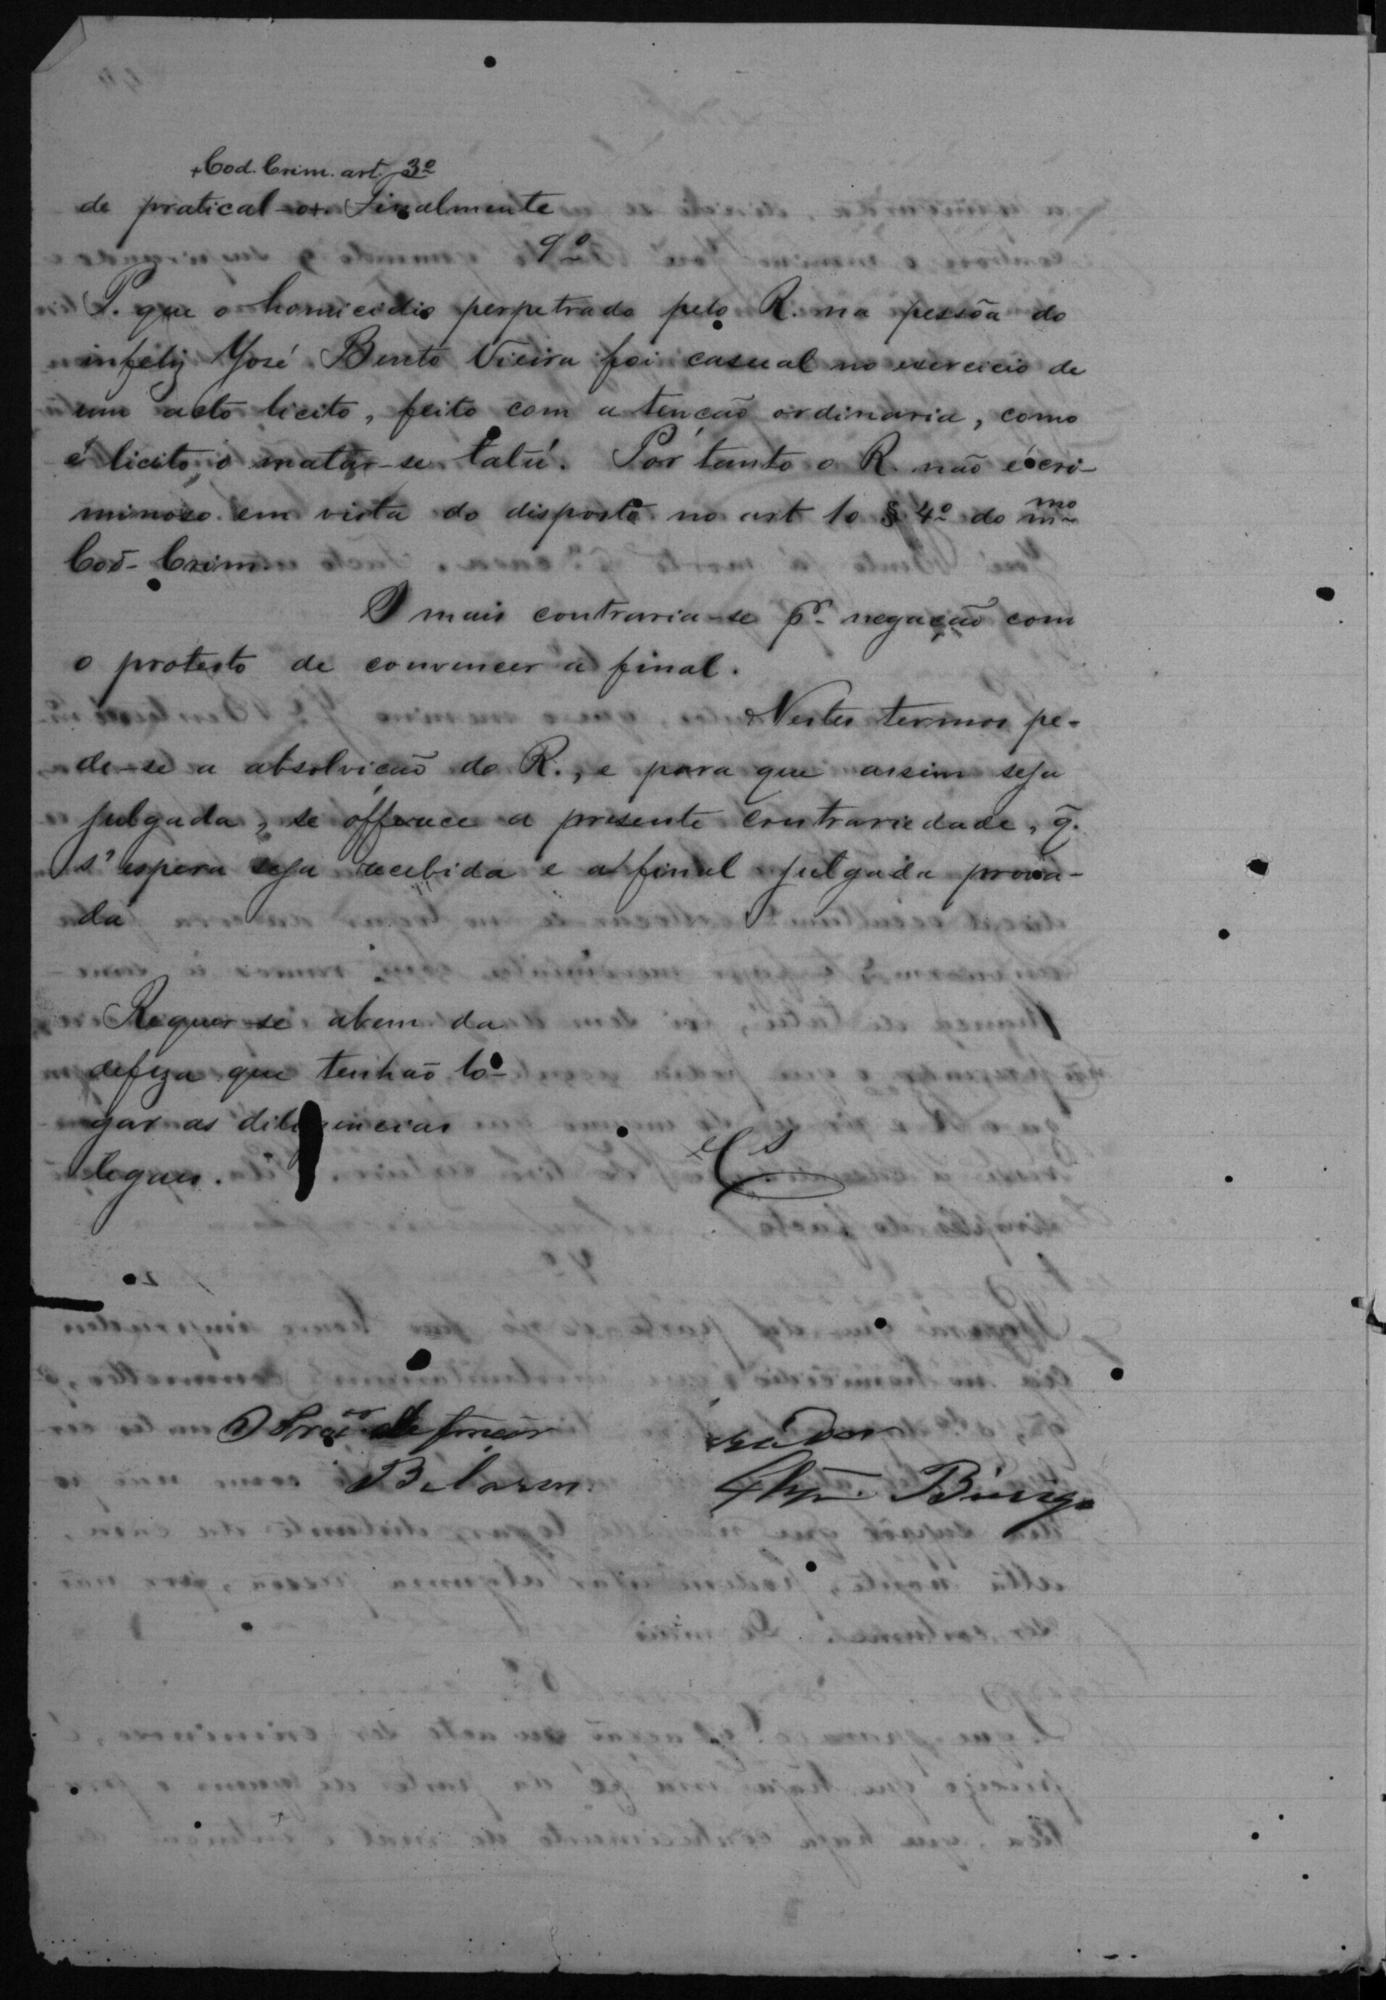 +Cod. Crim. art. 3º
de pratical-o. Finalmente
9º
P. que o homicidio perpetrado pelo R. na pessôa do
infeliz José Bento Vieira foi casual no exercicio de
um acto licito, feito com a tenção ordinaria, como
é licito o matar-se tatú. Por tanto o R. não é cri-
minoso em vista do disposto no art 10 § 4º do mmo
Cod. Crim.
O mais contraria-se pr. negação com
o protesto de convencer a final.
Nestes termos pe-
de-se a absolvicão do R., e para que assim seja
julgada, se offerece a presente contrariedade, q̃.
s'espera seja recebida e a final julgada prova-
da
Requer-se abem da
defeza que tenhão lo-
gar as diligencias
legaes.